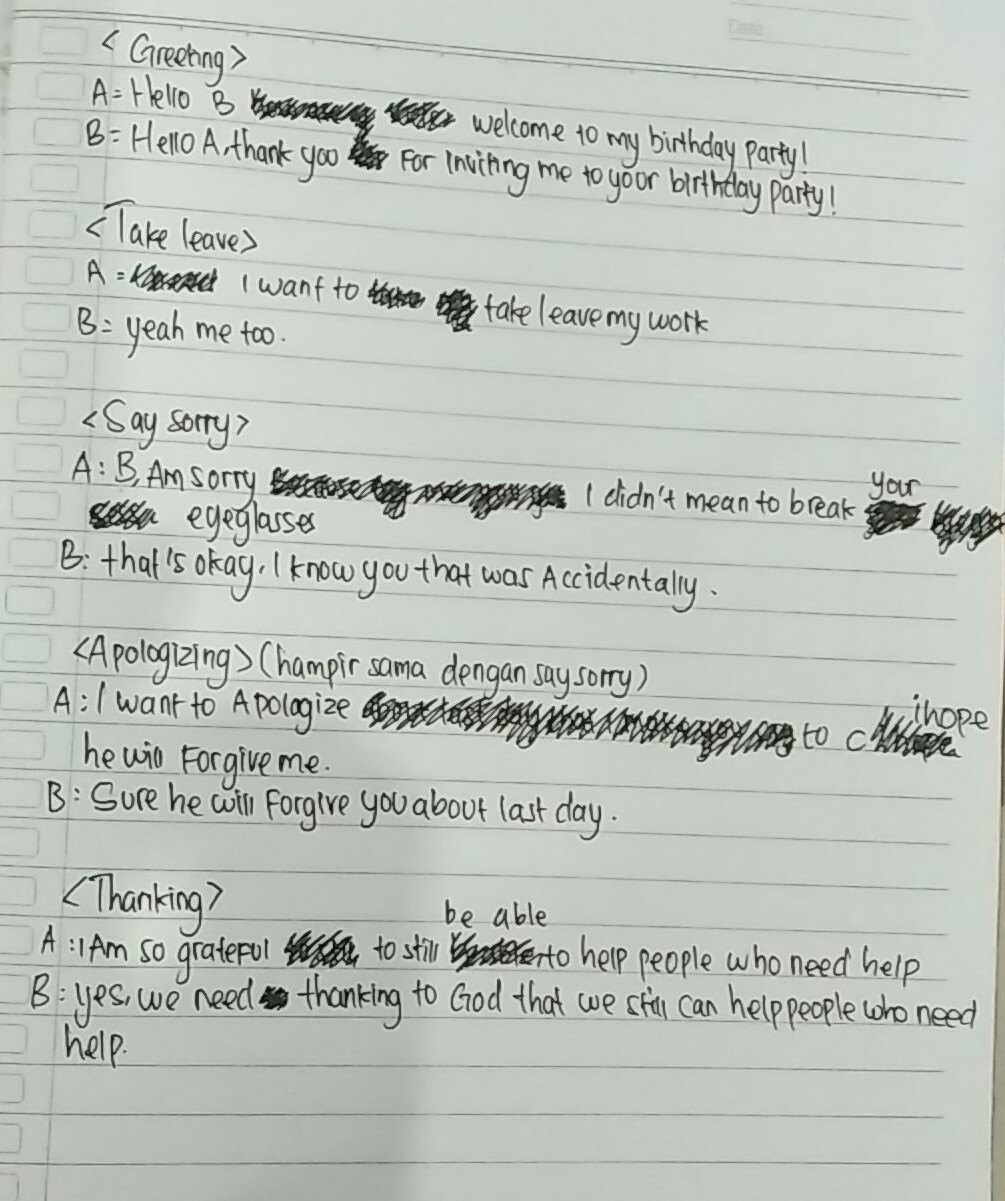 Date
< Greeting>
A = Hello B welcome to my birthday party!
B = Hello A, thank you For inviting me to your birthday party!
<Take leave>
A = I want to take leave my work
B = yeah me too.
<Say sorry>
A : B, Am sorry I didn't mean to break your
eyeglasses
B : that's okay, I know you that was Accidentally.
<Apologizing> (hampir sama dengan say sorry)
A : I want to Apologize to C i hope
he will Forgive me.
B : Sure he will Forgive you about last day.
<Thanking>
A : I Am so grateful to still be able to help people who need help
B : yes, we need thanking to God that we still can help people who need
help.